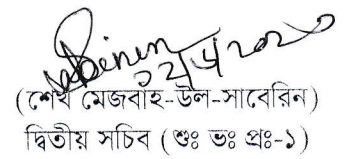 (শেখ মেজবাঁহ-উল-সাবেরিন)
দ্বিতীয় সচিব (শুঃ ভঃ প্রঃ-১)